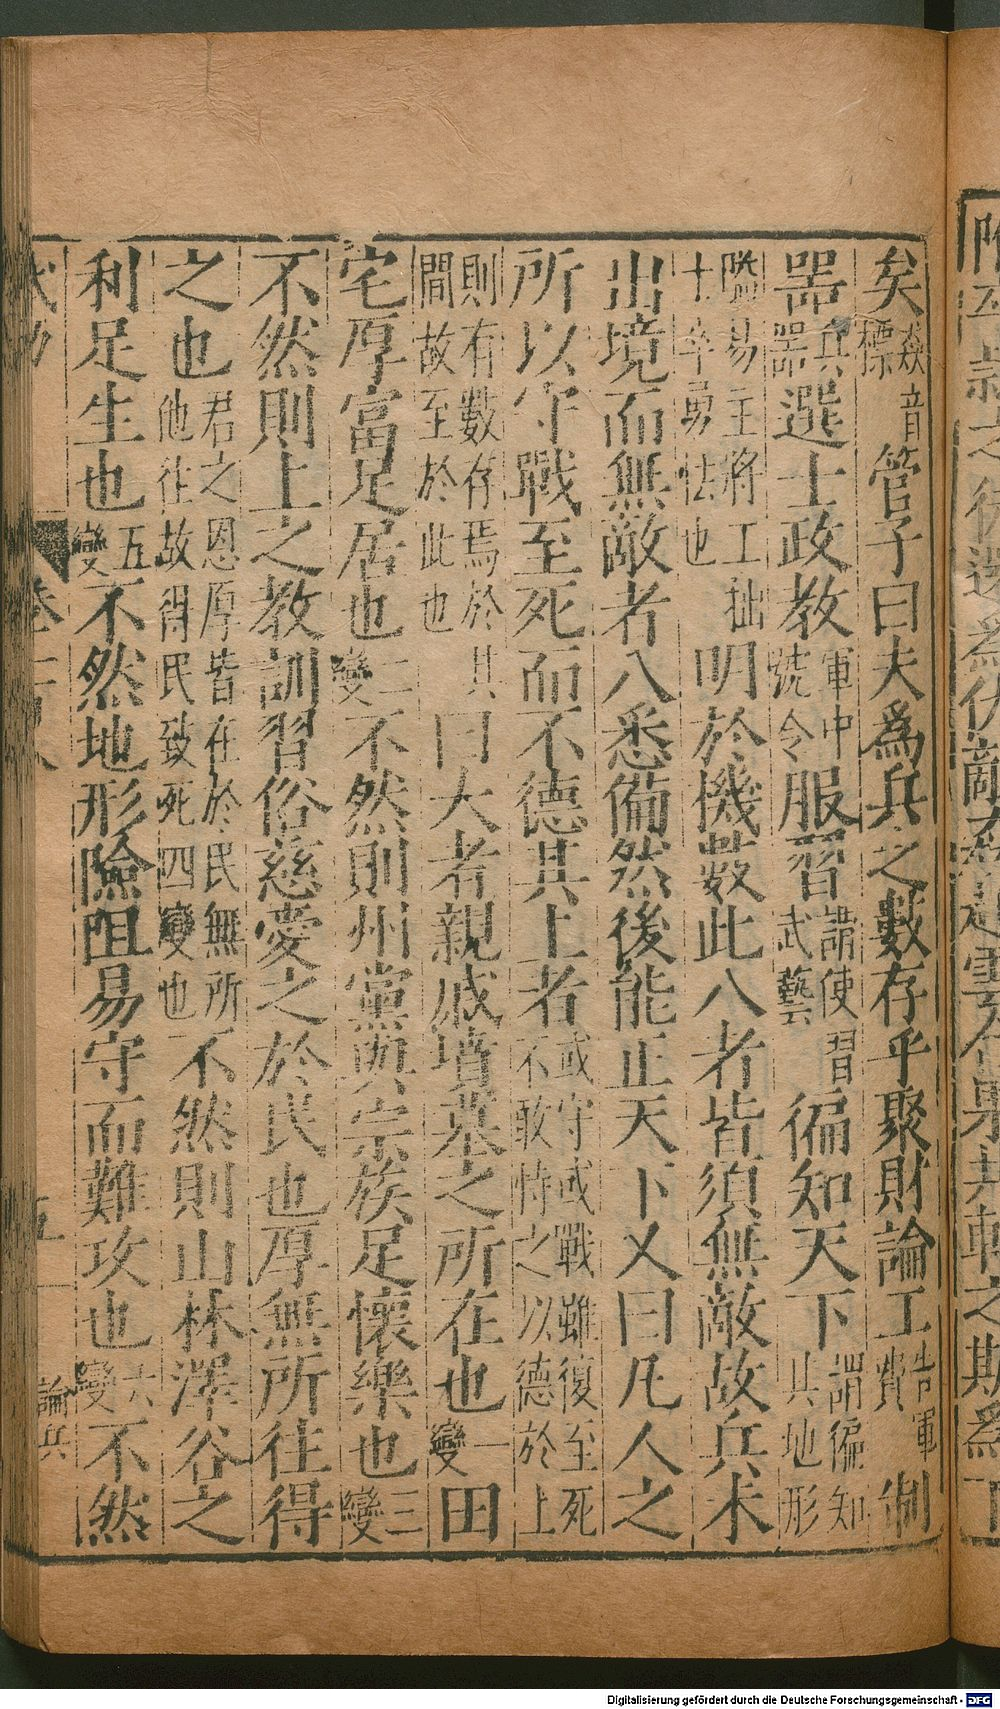 矣猋音標管子曰夫爲兵之數存乎聚財論工告軍費制
器兵器選士政教軍中號令服習謂使習武藝徧知天下謂徧知其地形
險易主將工拙士卒勇怯也明於機數此八者皆須無敵故兵未
出境而無敵者八悉備然後能正天下又曰凡人之
所以守戰至死而不德其上者或守或戰雖復至死不敢恃之以德於上
則有數存焉於其間故至於此也曰大者親戚墳墓之所在也一變田
宅厚富足居也二變不然則州黨與宗族足懷樂也三變
不然則上之教訓習俗慈愛之於民也厚無所往得
之也君之恩厚皆在於民無所他往故得民致死四變也不然則山林澤谷之
利足生也五變不然地形險阻易守而難攻也六變不然
五 論兵
Digitalisierung gefördert durch die Deutsche Forschungsgemeinschaft - DFG